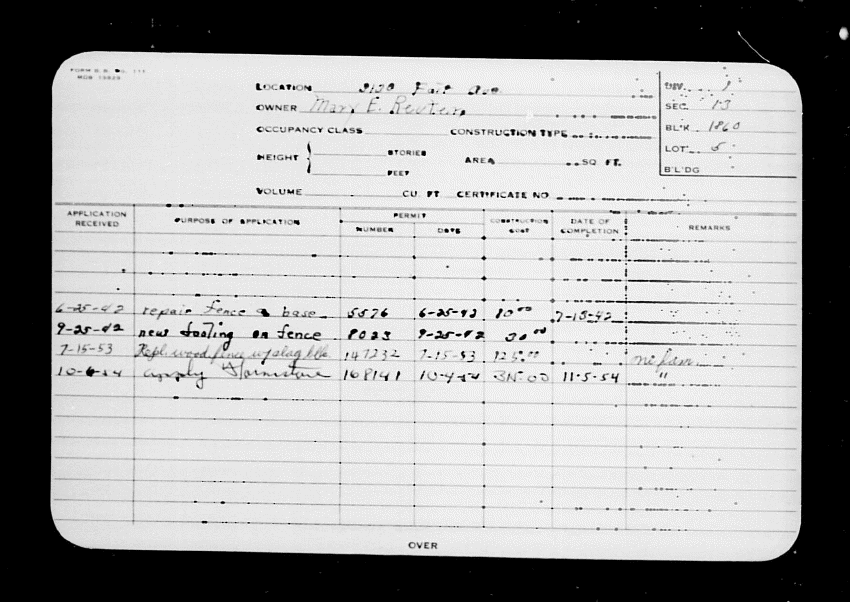 FORM B. B. No. 111
MDB 19829
LOCATION 3120 Fair Ave
OWNER Mary E. Reuter
OCCUPANCY CLASS CONSTRUCTION TYPE
HEIGHT STORIES FEET AREA SQ. FT.
VOLUME CU. FT. CERTIFICATE NO
DIV. 1
SEC. 13
BL'K 1860
LOT 5
B'L'DG
APPLICATION RECEIVED PURPOSE OF APPLICATION PERMIT NUMBER DATE CONSTRUCTION COST DATE OF COMPLETION REMARKS
6-25-42 repair fence & base 5576 6-25-42 10 00 7-15-42
9-25-42 new footing on fence 8023 9-25-42 30 00
7-15-53 Repl. wood fence w/slag blk. 147232 7-15-53 125.00
10-4-54 apply 168141 10-4-54 11-5-54 "
OVER